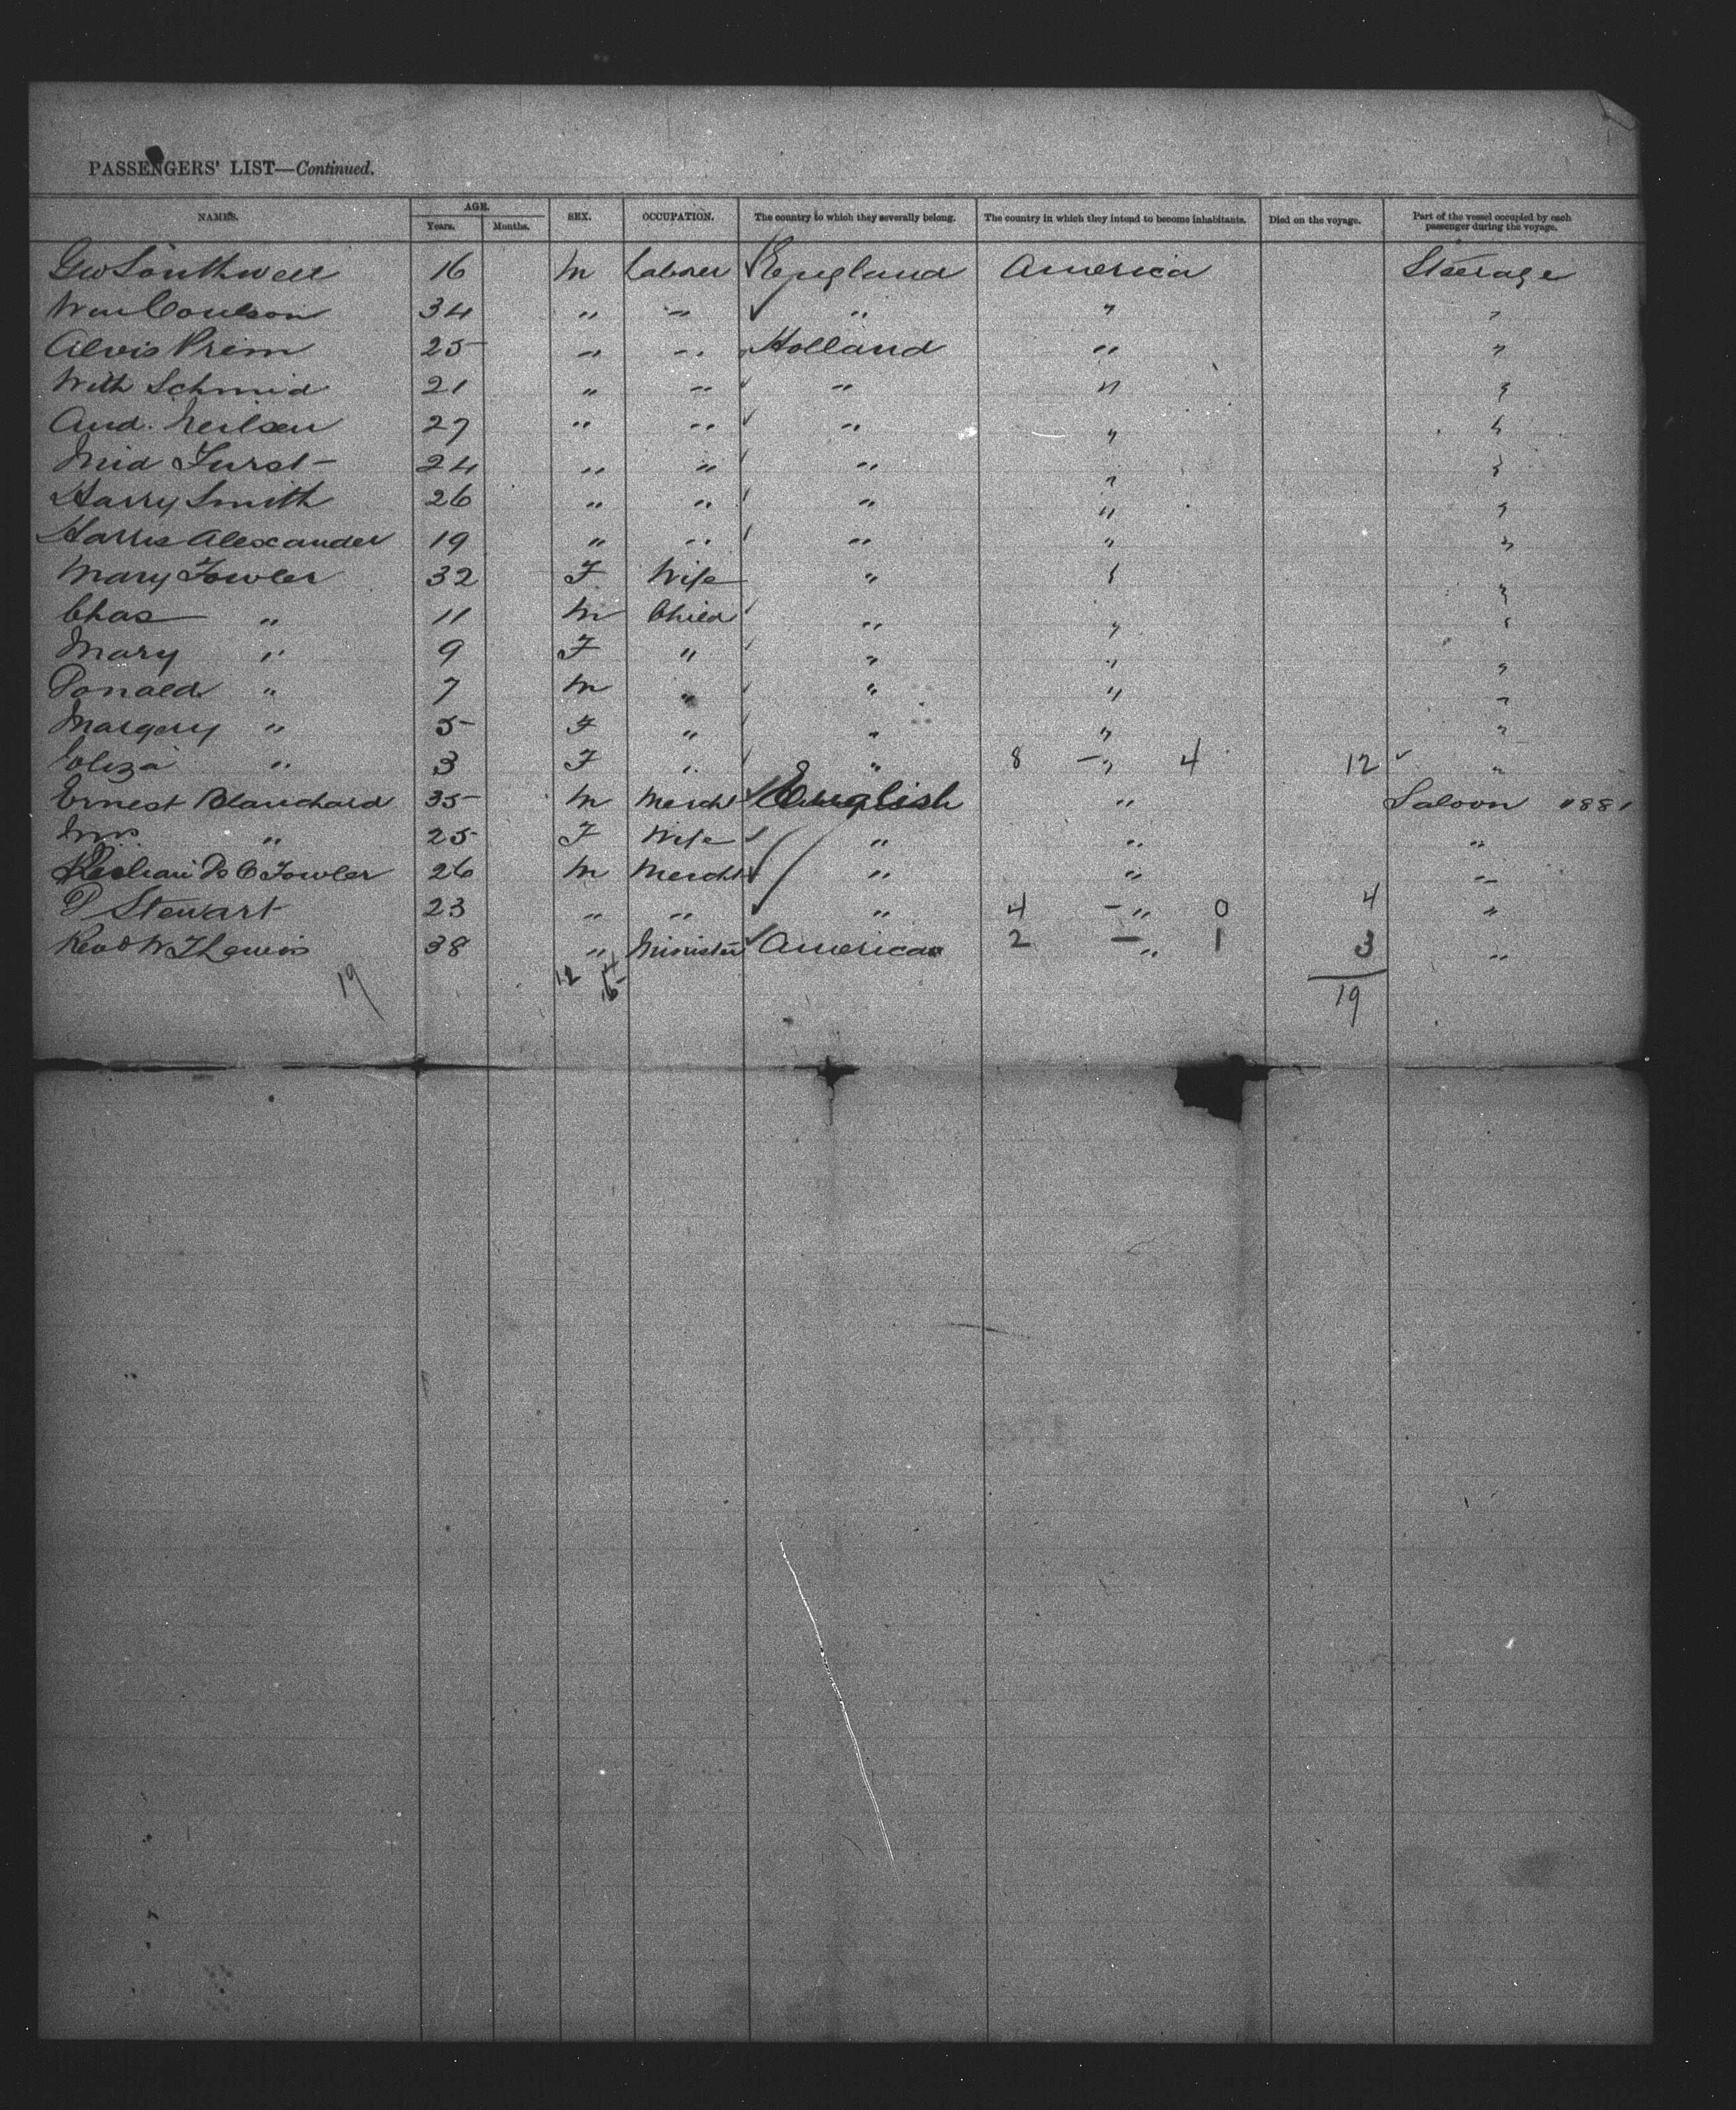 PASSENGERS' LIST—Continued.
NAMES. AGE. Years. Months. SEX. OCCUPATION. The country to which they severally belong. The country in which they intend to become inhabitants. Died on the voyage. Part of the vessel occupied by each passenger during the voyage.
Geo Southwell 16 M Laborer England America Steerage
Wm Coulson 34 " " " " "
Alvis Prim 25 " " Holland " "
Wilh Schmid 21 " " " " "
And. Neilsen 27 " " " " "
Furst 24 " " " " "
Harry Smith 26 " " " " "
Harris Alexander 19 " " " " "
Mary Fowler 32 F Wife " " "
Chas " 11 M Child " " "
Mary " 9 F " " " "
Donald " 7 M " " " "
Margery " 5 F " " " "
Eliza " 3 F " " 8 - " 4 12 "
Ernest Blanchard 35 M Mercht English " Saloon
Mrs " 25 F Wife " " "
Fowler 26 M Mercht " " "
P Stewart 23 " " " 4 - " 0 4 "
Revd W J Lewis 38 " Minister America 2 - " 1 3 "
19 12 19